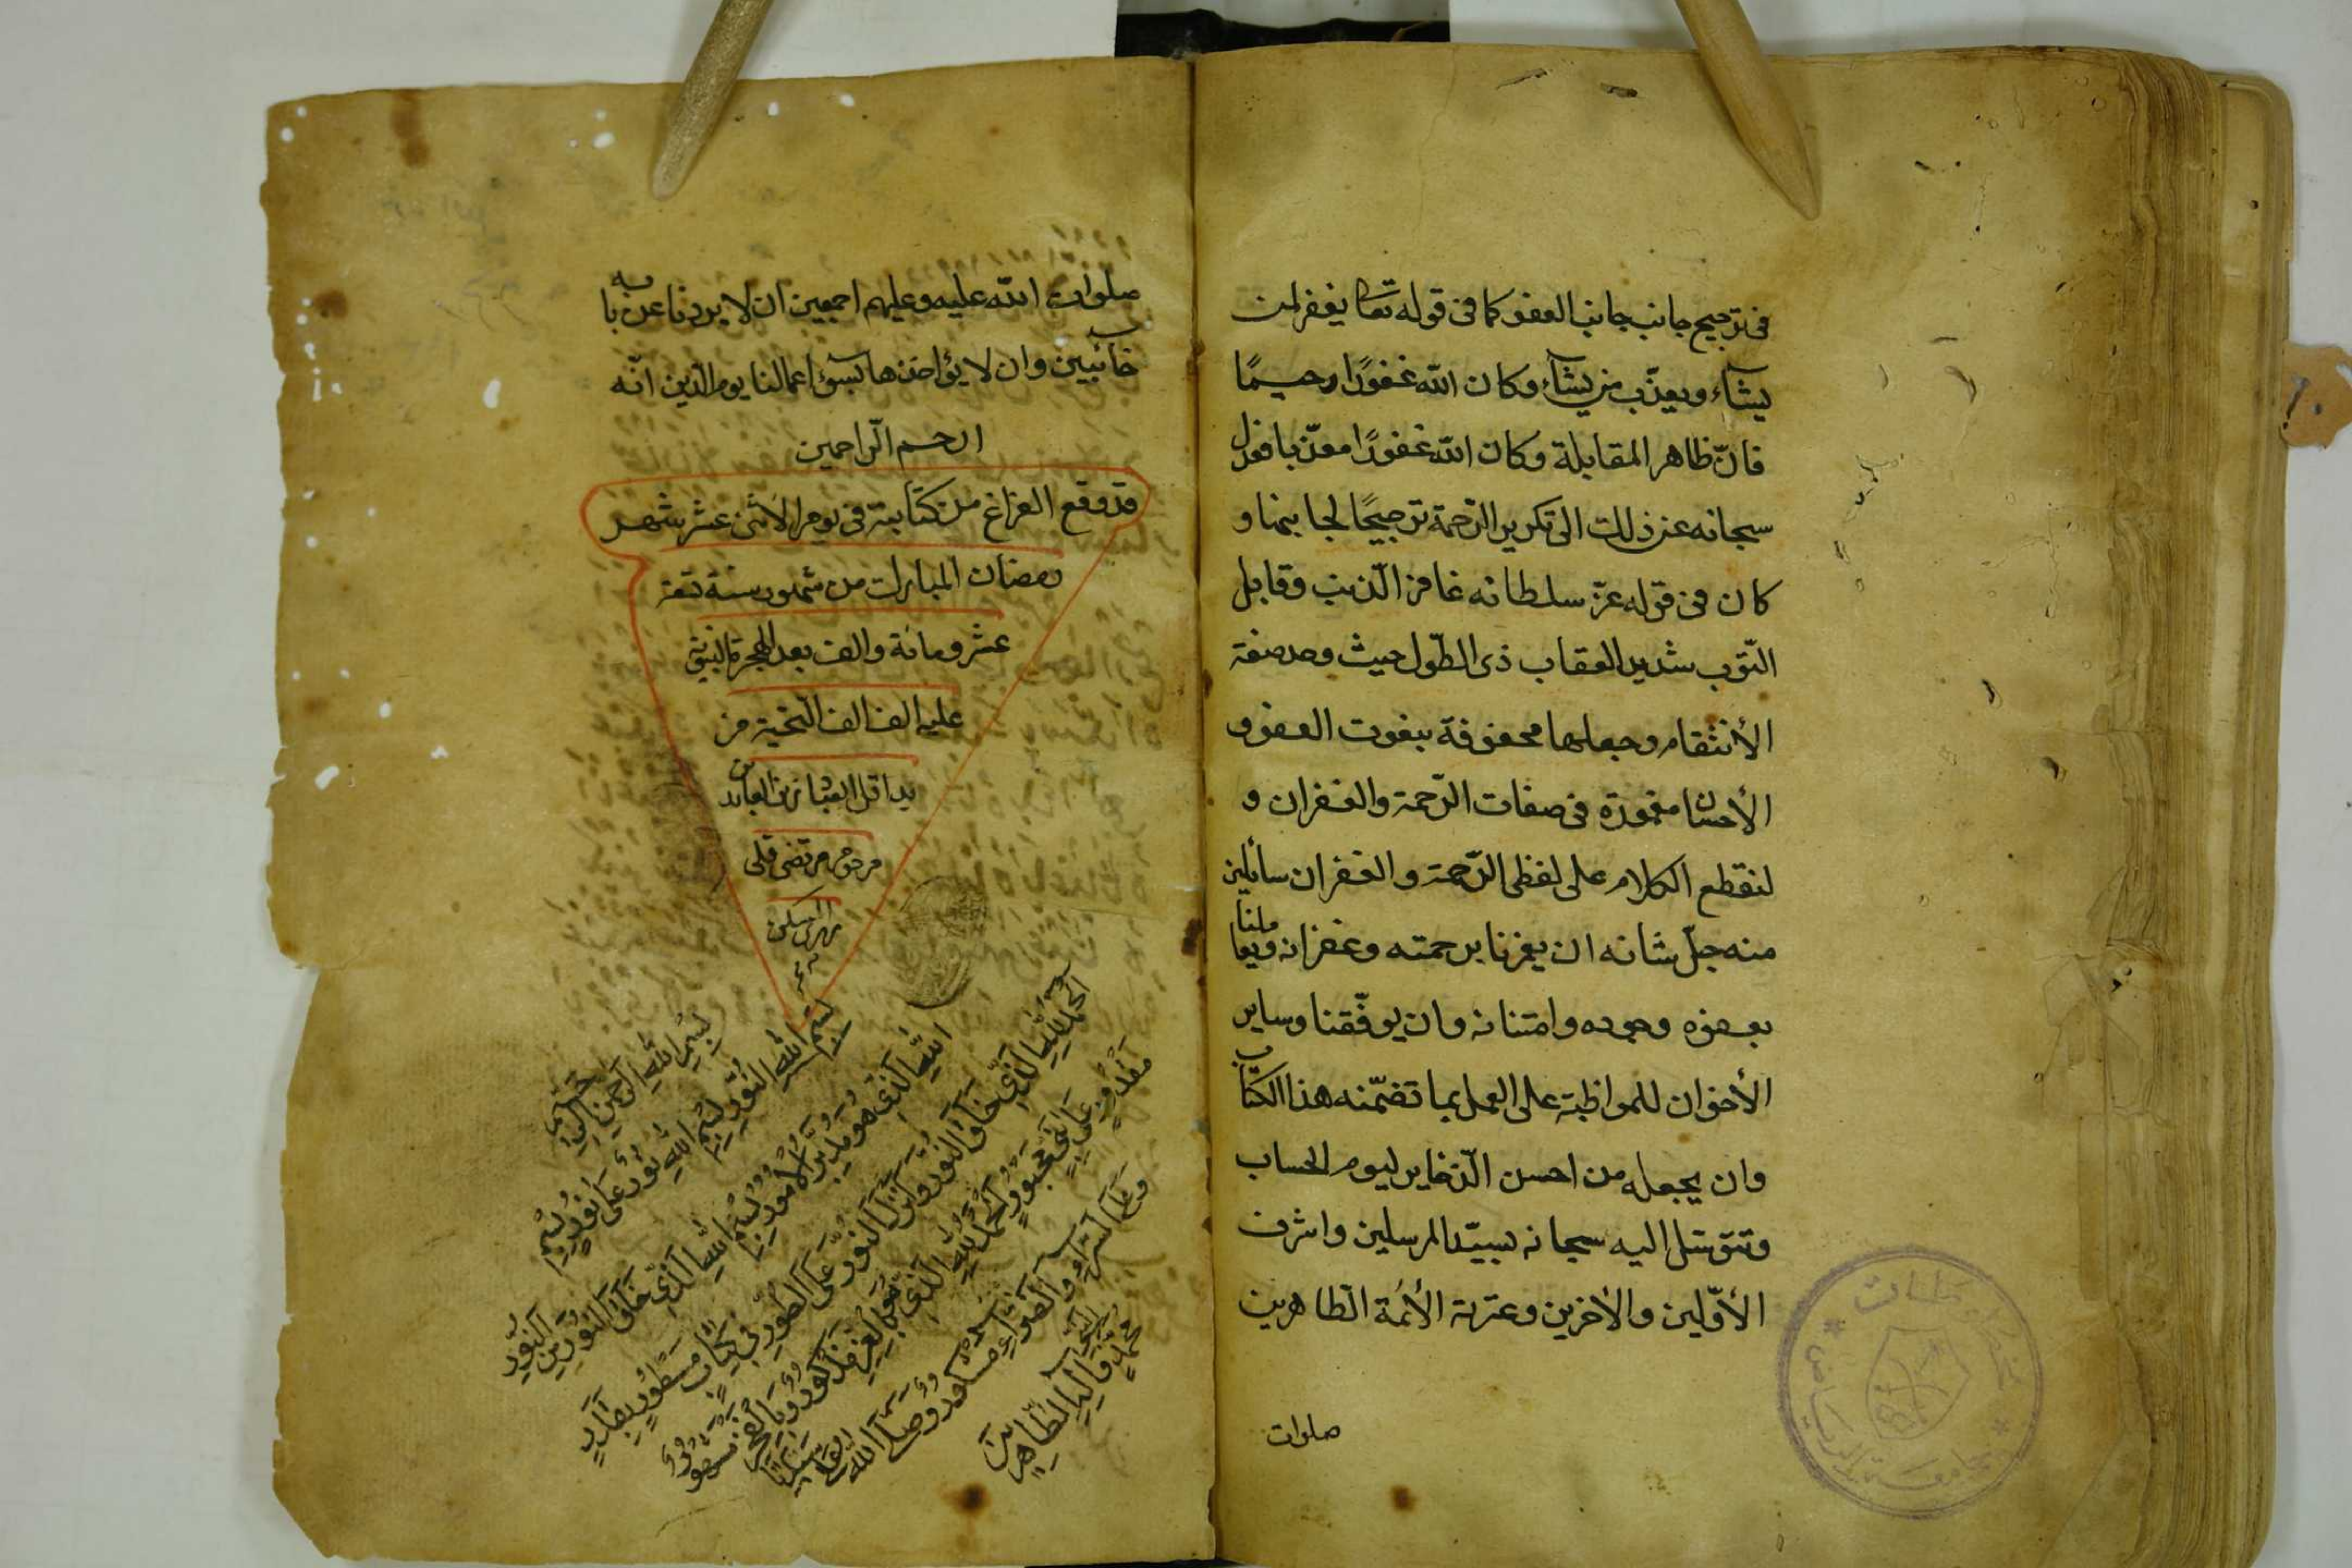 فى ترجيح جانب جانب العفو كما فى قوله تعا يغفر لمن
يشآء ويعذّب من يشآء وكان اللّه غفورًا رحيمًا
فانّ ظاهر المقابلة وكان اللّه غفورًا معذّبا فعدل
سبحانه عن ذلك الى تكرير الرّحمة ترجيحًا لجانبها و
كان فى قوله عزّ سلطانه غافر الذّنب وقابل
التّوب شديد العقاب ذى الطّول حيث وحد صفة
الأنتقام وجعلها محفوفة بنعوت العفو و
الأحسان مغمورة فى صفات الرّحمة والغفران و
لنقطع الكلام على لفظى الرّحمة والغفران سائلين
منه جلّ شانه ان يغمرنا برحمته وغفرانه ويعاملنا
بعفوه وجوده وامتنانه وان يوفّقنا وساير
الأخوان للمواظبة على العمل بما تضمّنه هذا الكتاب
وان يجعله من احسن الذّخاير ليوم الحساب
ونتوسّل اليه سبحانه بسيّد المرسلين واشرف
الأوّلين والأخرين وعترته الأئمة الطّاهرين
صلوات
صلوات اللّه عليه وعليهم اجمعين ان لا يردنا عن بابه
خآئبين وان لا يؤاخذنا بسوء اعمالنا يوم الدّين انّه
ارحم الرّاحمين
قد وقع الفراغ من كتابته فى يوم الاثنى عشر شهر
رمضان المبارك من شهور سنة تسعة
عشر ومائة والف بعد الهجرة النبوّية
عليه الف الف التحية من
يد اقل العباد زين العابدين
مرحوم مرتضى قلى
بسم اللّه الرحمن الرحيم
بسم اللّه النّور بسم اللّه نور على نور بسم
اللّه الّذى هو مدبّر الأمور بسم اللّه الّذى خلق النّور من النّور
الحمد للّه الّذى خلق النّور وانزل النّور على الطّور فى كتاب مسطور بقدر
مقدور على نبى محبور الحمد للّه الّذى هو بالعز مذكور وبالفخر مشهور
وعلى السّراء والضّراء مشكور وصلّى اللّه على سيّدنا
محمّد وآله الطّاهرين